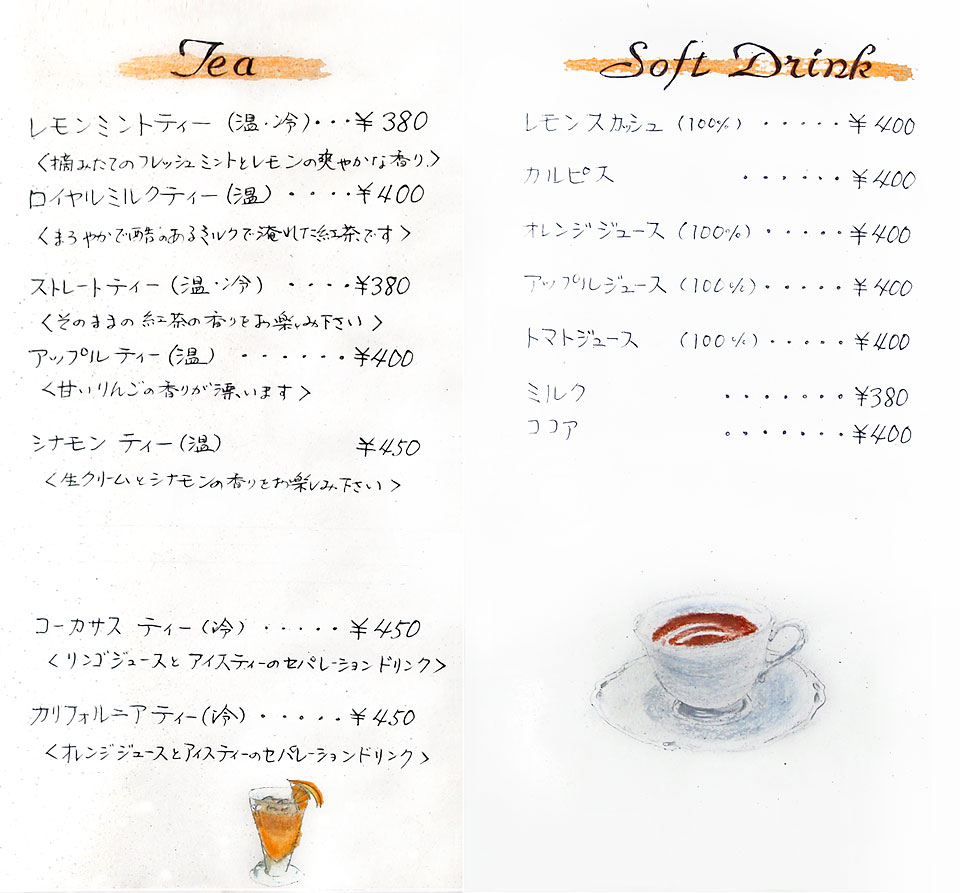 Tea
レモンミントティー (温・冷)・・・¥380
〈摘みたてのフレッシュミントとレモンの爽やかな香り〉
ロイヤルミルクティー(温) ・・・・¥400
〈まろやかで酷のあるミルクで淹れた紅茶です〉
ストレートティー (温・冷) ・・・・¥380
〈そのままの紅茶の香りをお楽しみ下さい〉
アップルティー(温) ・・・・・・¥400
〈甘いりんごの香りが漂います〉
シナモン ティー(温) ¥450
〈生クリームとシナモンの香りをお楽しみ下さい〉
コーカサス ティー(冷) ・・・・・¥450
〈リンゴジュースとアイスティーのセパレーションドリンク〉
カリフォルニアティー(冷) ・・・・・¥450
〈オレンジジュースとアイスティーのセパレーションドリンク〉
Soft Drink
レモンスカッシュ (100%) ・・・・・¥400
カルピス ・・・・・・¥400
オレンジジュース (100%)・・・・・¥400
アップルジュース (100%)・・・・・¥400
トマトジュース (100%)・・・・・¥400
ミルク ・・・・・・・¥380
ココア ・・・・・・・¥400